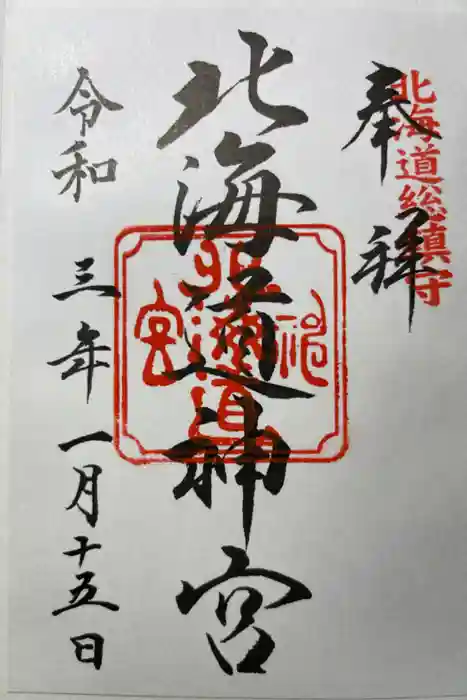 奉拝
北海道総鎮守
北海道神宮
北海道神宮
令和三年一月十五日